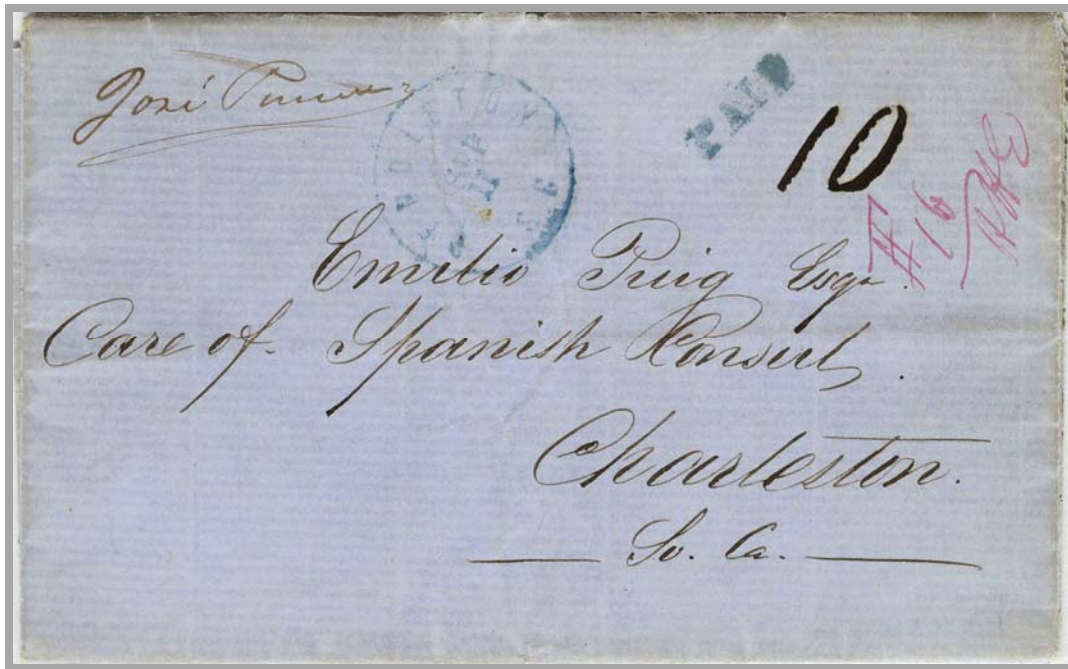 José
SEP
11
PAID
10
#16
Emilio Puig Esqr.
Care of. Spanish Consul.
Charleston.
So. Ca.